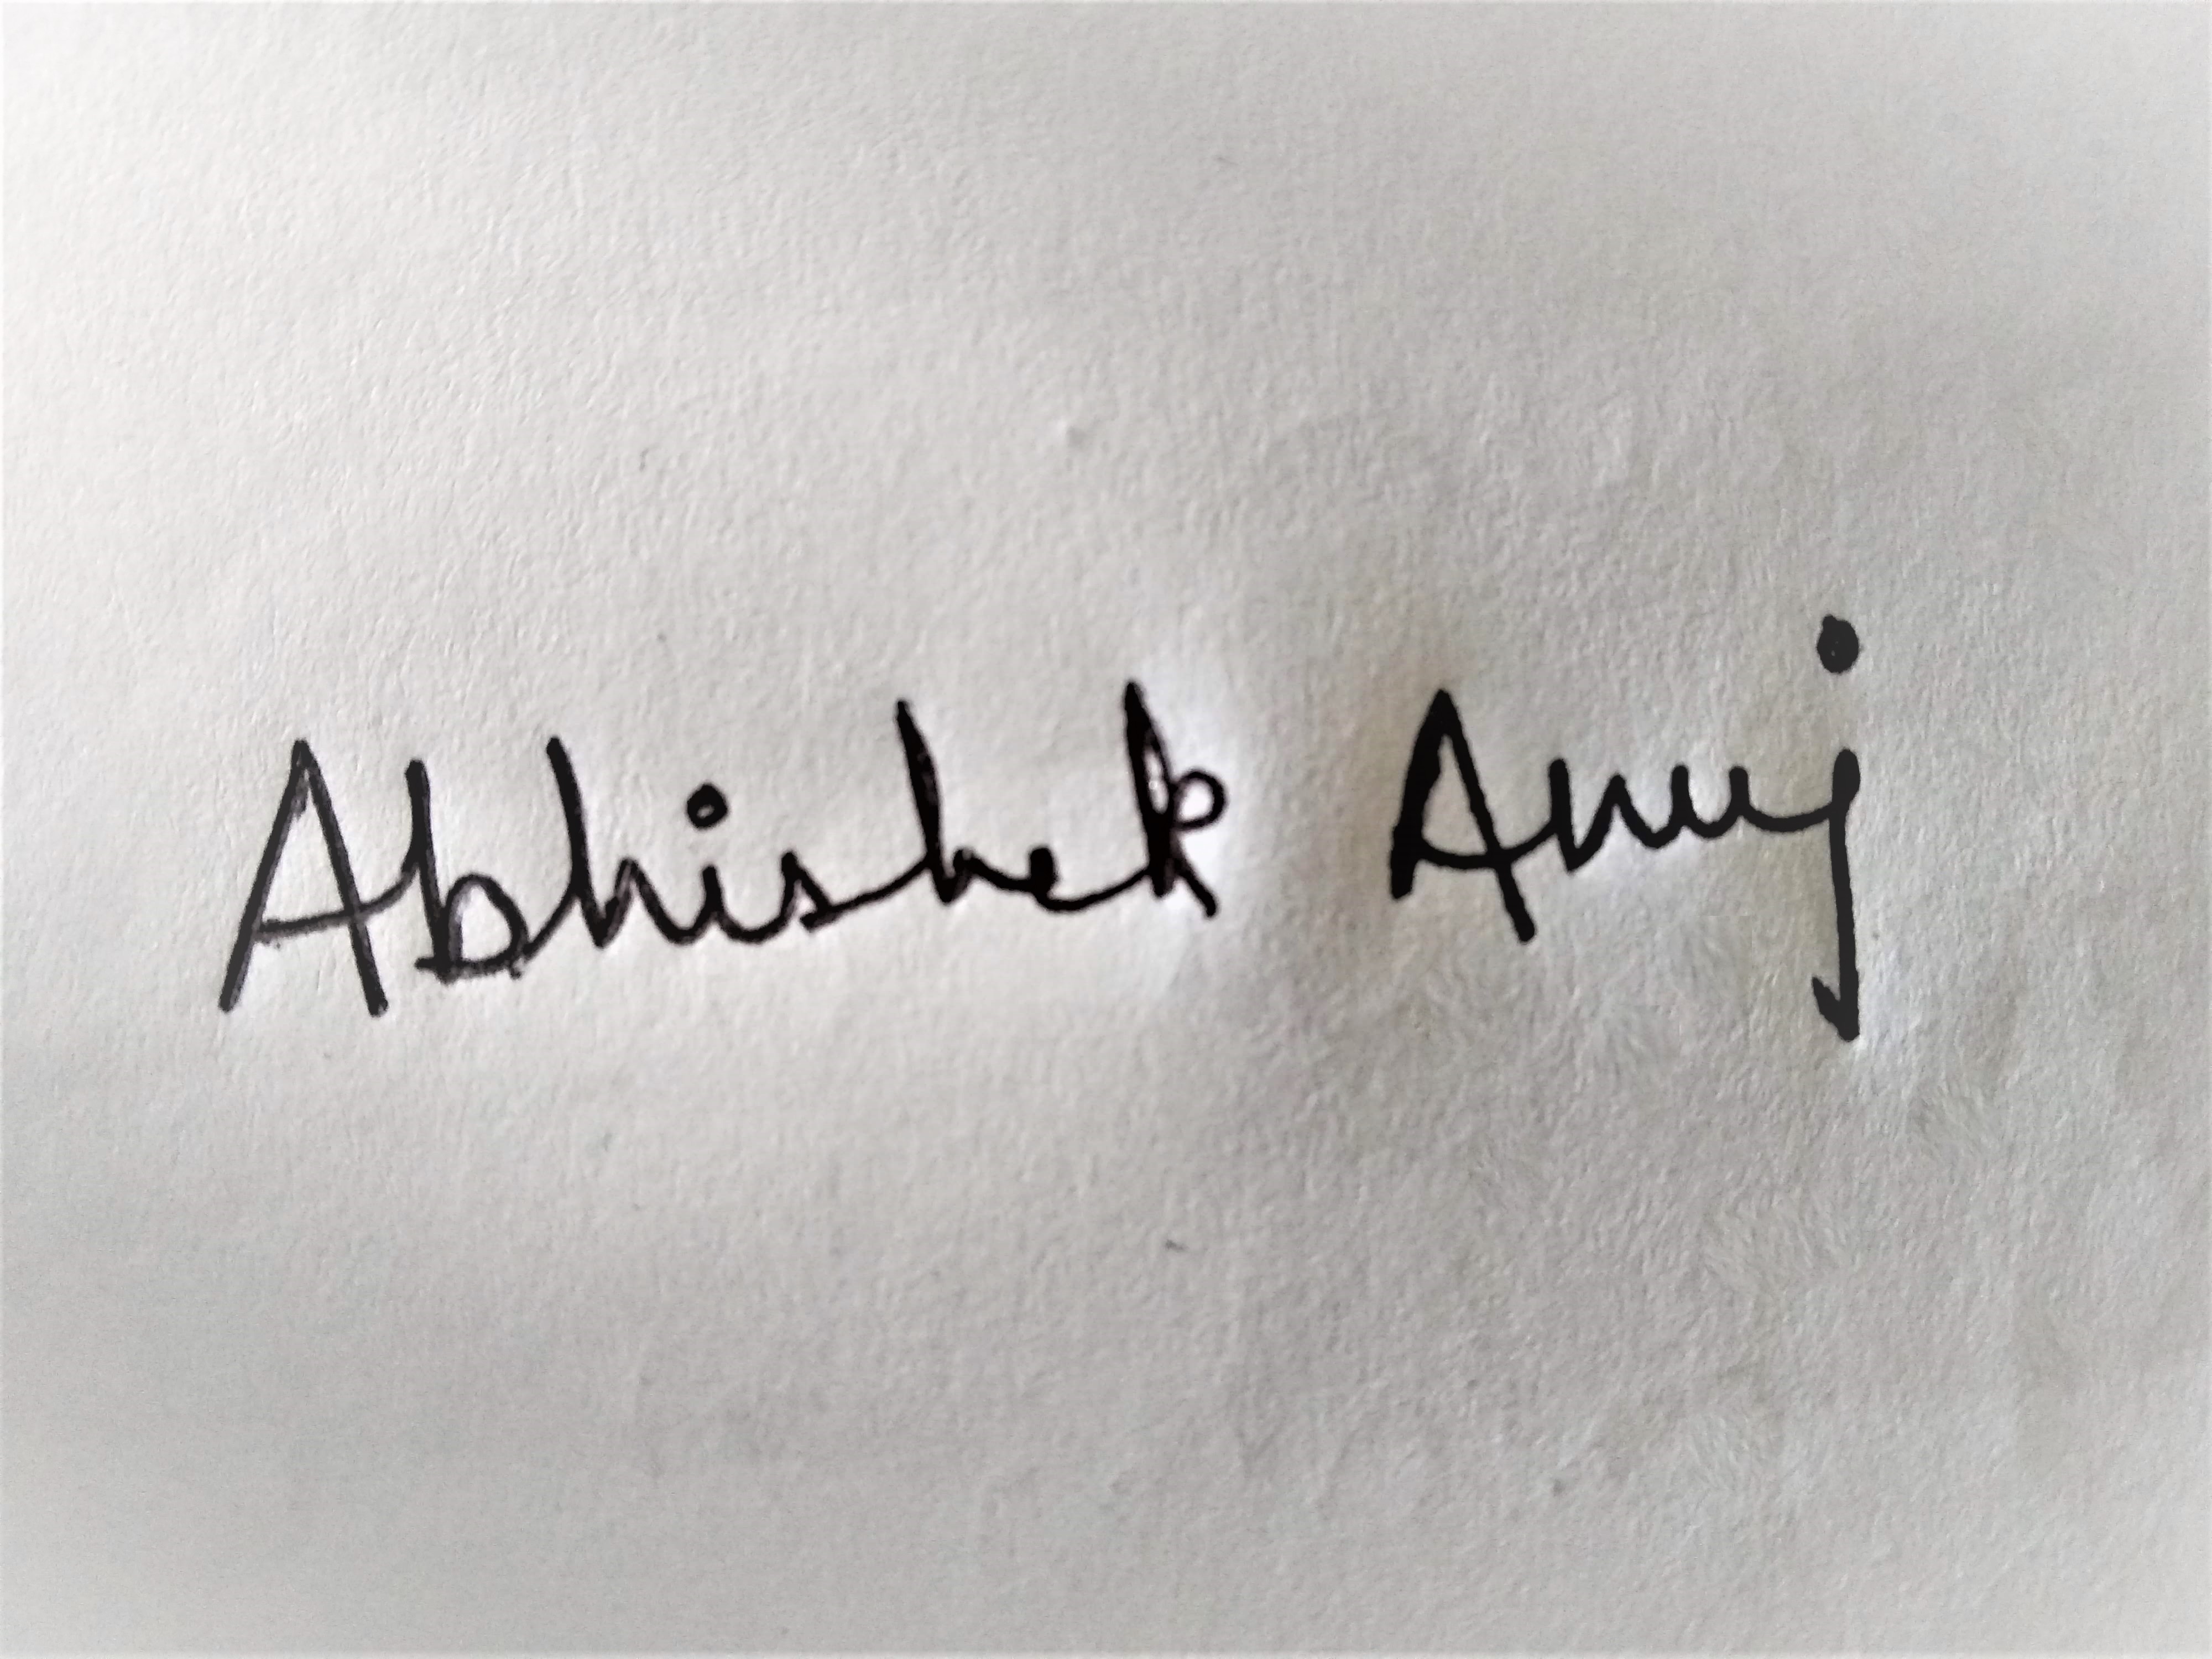 Abhishek Anuj